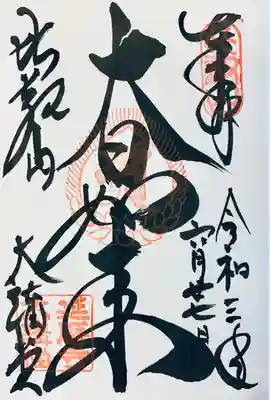 奉拝
令和三年
六月廿七日
大日如来
比叡山
大講堂